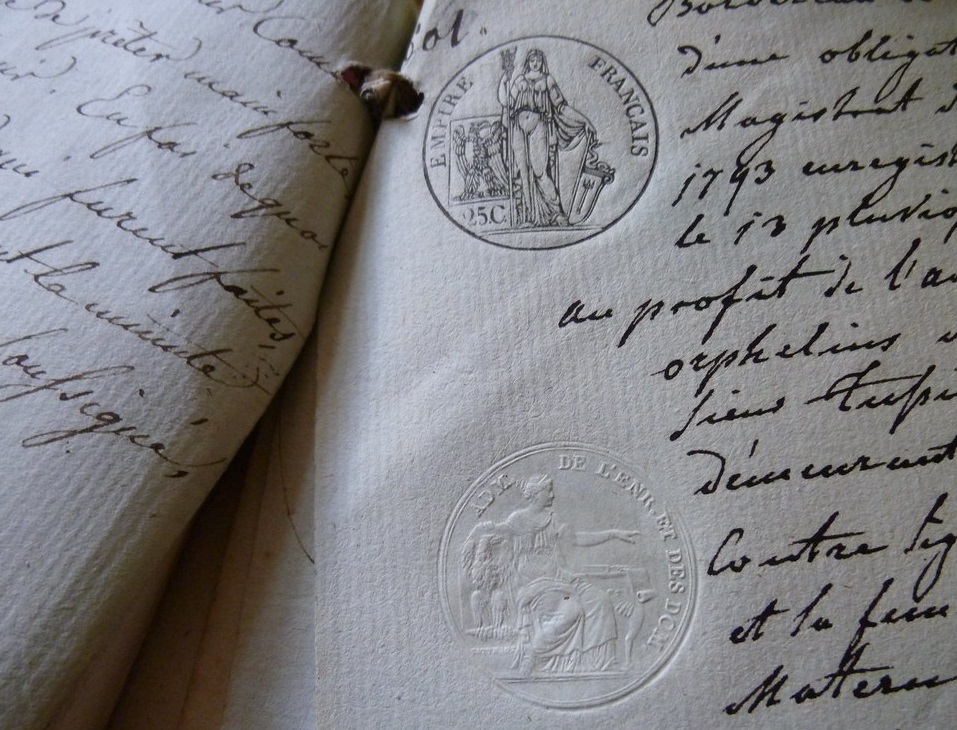 Cour
prêter main forte
En foi de quoi
furent faites
et la minute
soussignés
Sol.
EMPIRE FRANÇAIS
25C.
Bordeaux
d'une obligat
Magistrat d
1793 enregist
le 13 pluvio
au profit de l'au
orphelins
Sieur
demeurant
Contre Sig
et la fem
Matern
ADM. DE L'ENR. ET DES DOM